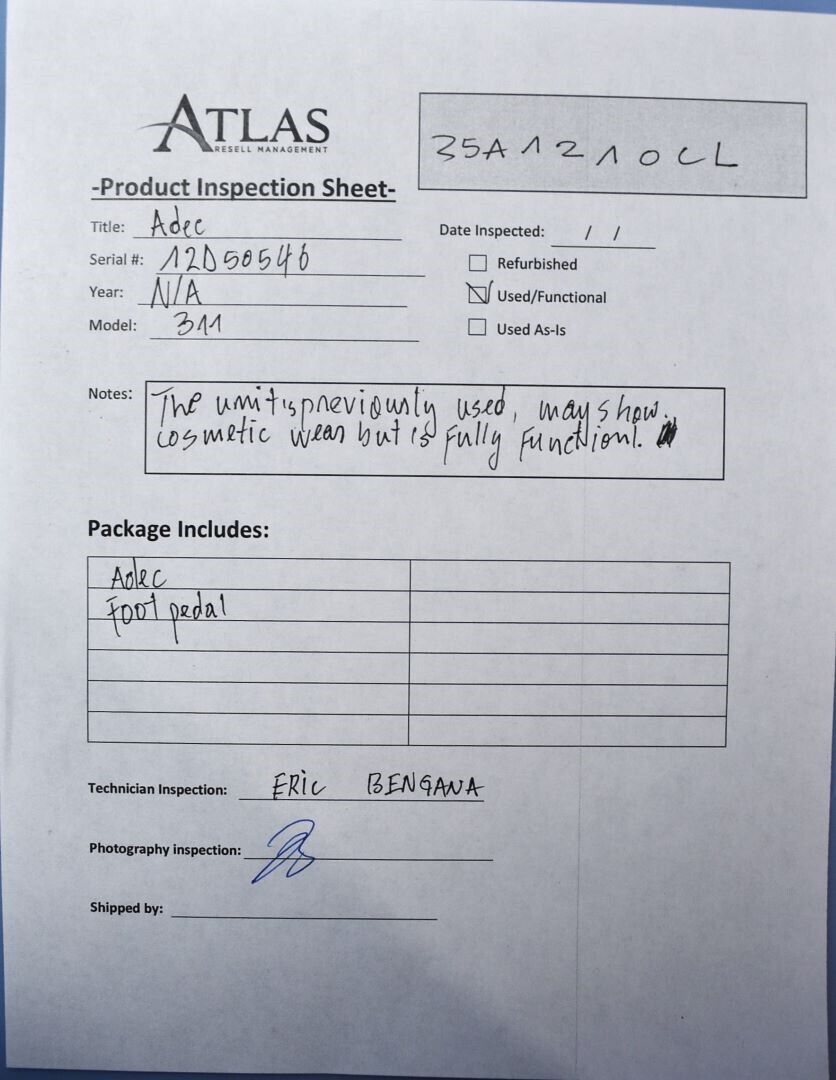 ATLAS
RESELL MANAGEMENT
35A1210CL
-Product Inspection Sheet-
Title: Adec
Date Inspected: / /
Serial #: 12D50546
Refurbished
Year: N/A
Used/Functional
Model: 311
Used As-Is
Notes: The unit is previously used, may show
cosmetic wear but is fully functionl.
Package Includes:
Adec
Foot pedal
Technician Inspection: ERIC BENGANA
Photography inspection:
Shipped by: